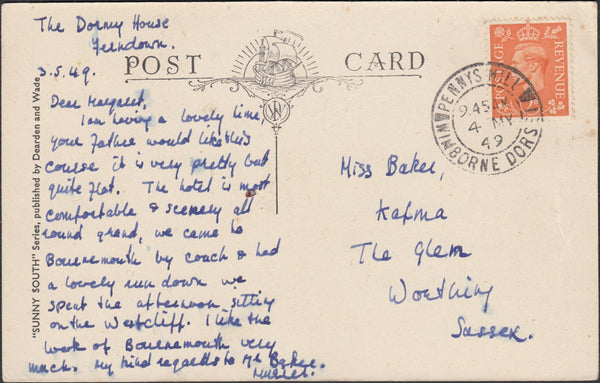 The Dormy House
Ferndown.
3.5.49.
POST CARD
Dear Margaret,
I am having a lovely time,
your Father would like this
course it is very pretty but
quite flat. The hotel is most
comfortable & scenery all
round grand, we came to
Bournemouth by coach & had
a lovely run down we
spent the afternoon sitting
on the Westcliff. I like the
look of Bournemouth very
much. My kind regards to Mr Baker.
Muriel.
"SUNNY SOUTH" Series, published by Dearden and Wade
POSTAGE REVENUE
PENNYS HILL
9.45 AM
4 MY
49
WIMBORNE DORSET
Miss Baker,
Kafma
The Glen
Worthing
Sussex.